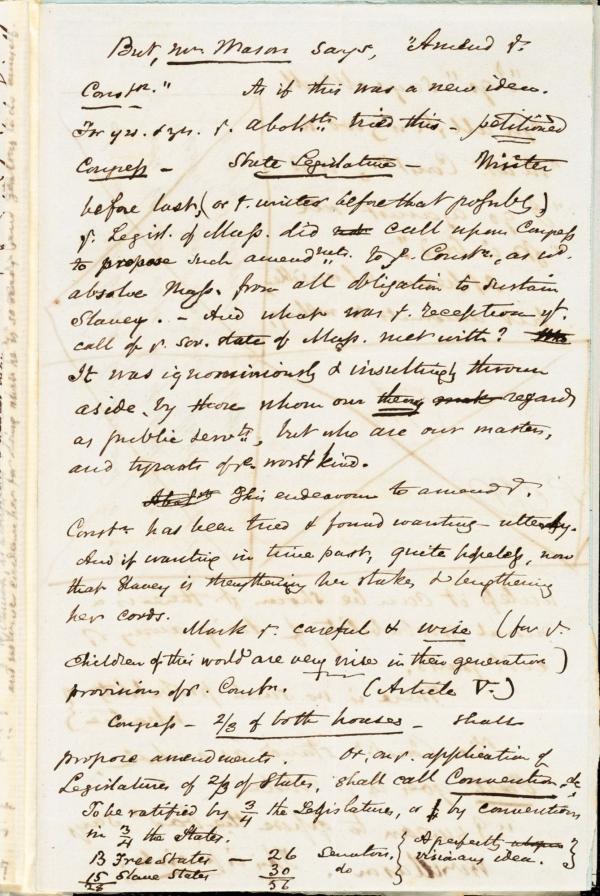 But, Mr. Mason says, "Amend ye.
Constn."  As if this was a new idea.
For yrs. & yrs. ye. abolsts. tried this - petitioned
Congress - State Legislature - Winter
before last, (or ye. winter before that possibly,)
ye. Legisl. of Mass. did not call upon Congress
to propose such amendmts. to ye. Constn., as wd.
absolve Mass. from all obligation to sustain
Slavery. - And what was ye. reception yt.
call of ye. sov. state of Mass. met with?
It was ignominiously & insultingly thrown
aside, by those whom our theory makes regards
as public servts., but who are our masters,
and tyrants of ye. worst kind.
This endeavour to amend ye.
Constn. has been tried & found wanting - utterly.
And if wanting in time past, quite hopeless, now
that Slavery is strengthening her stakes & lengthening
her cords.
Mark ye. careful & wise (for ye.
children of this world are very wise in their generation)
provisions of ye. Constn.  (Article V.)
Congress - 2/3 of both houses - shall
propose amendments.  Or, on ye. application of
Legislatures of 2/3 of States, shall call Convention, &c
To be ratified by 3/4 the Legislatures, or by conventions
in 3/4 the States.
13 Free States - 26 Senators, { A perfectly
15 Slave States 30 do { visionary idea.
28 56